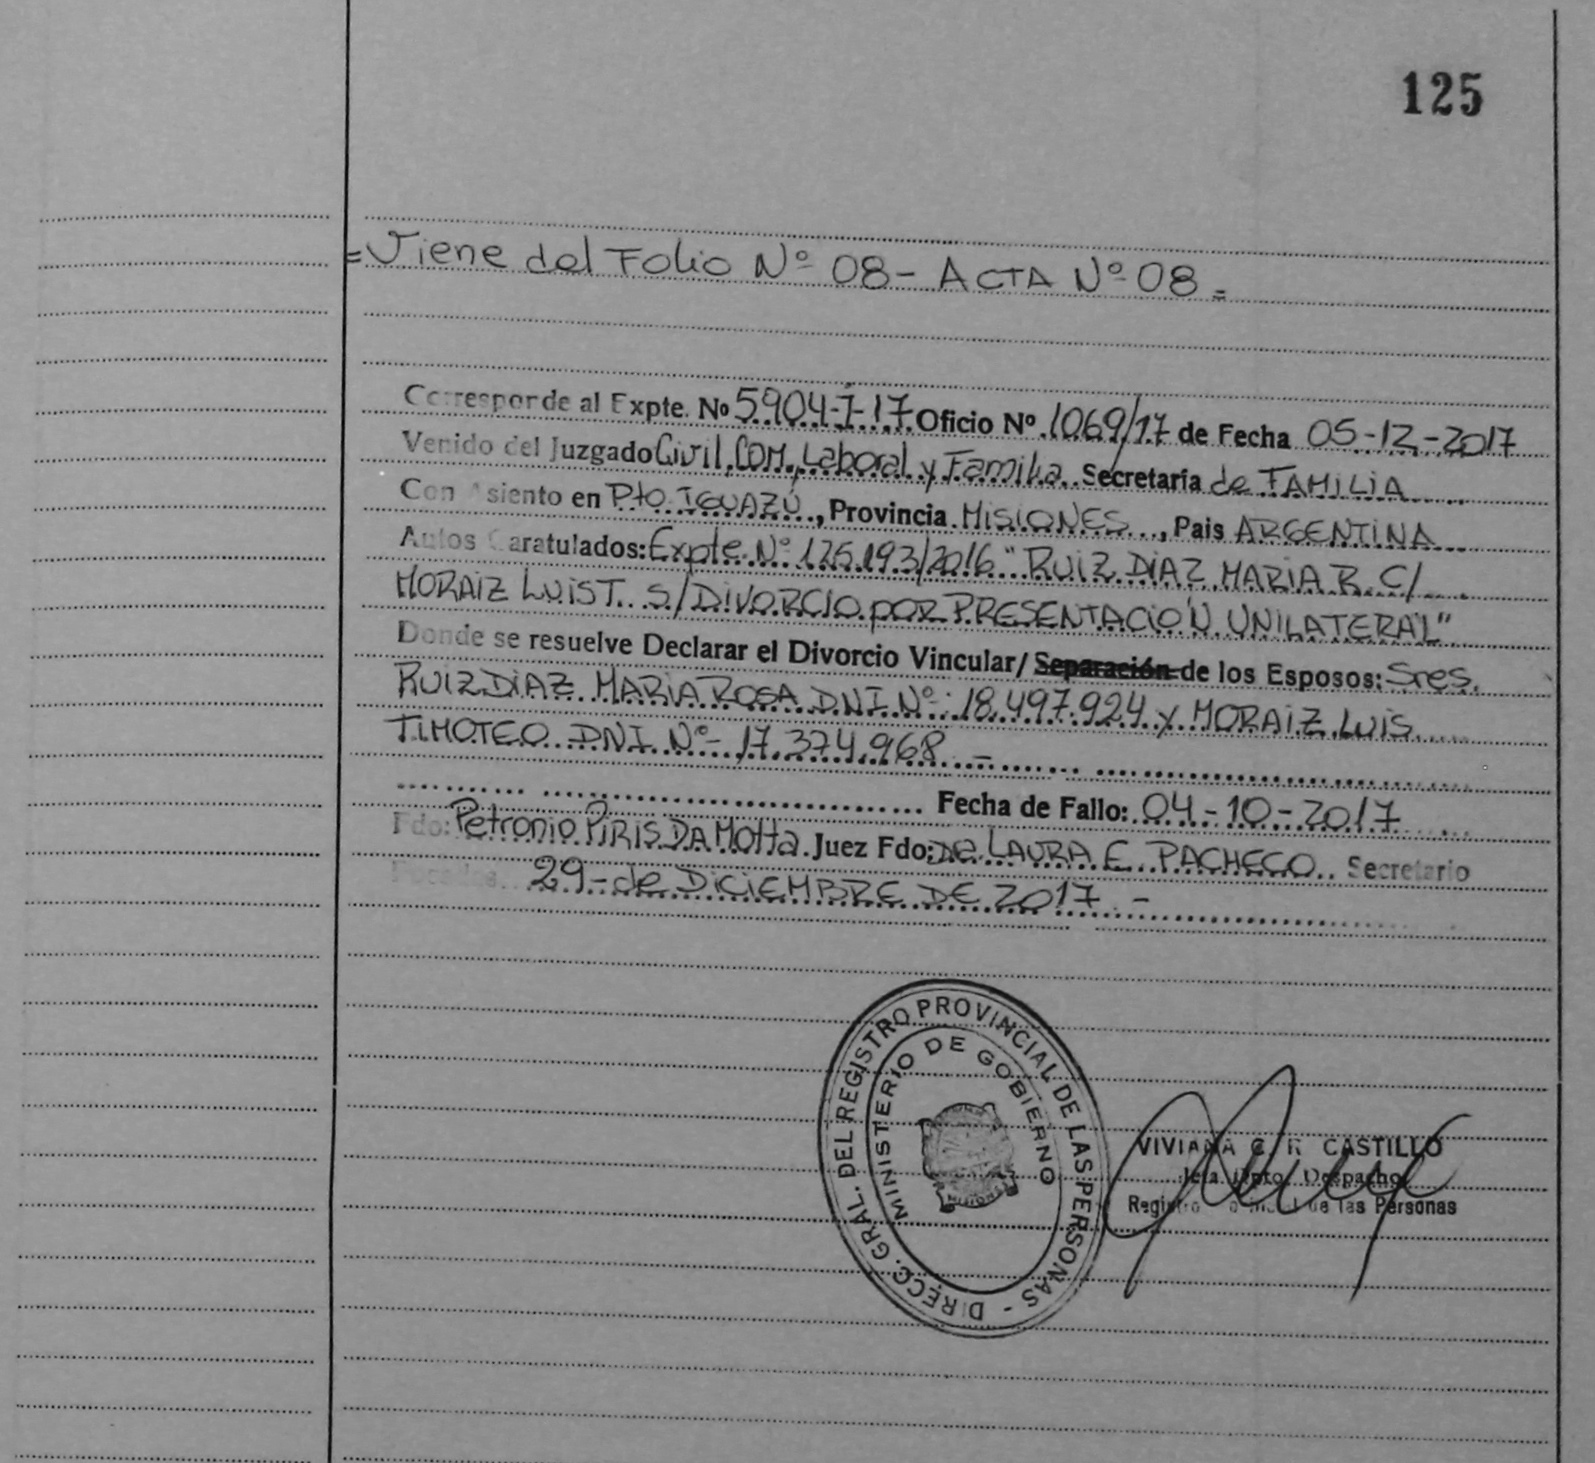 125
=Viene del Folio Nº 08- ACTA Nº 08=
Corresponde al Expte. Nº 5904-J-17 Oficio Nº 1069/17 de Fecha 05-12-2017
Venido del Juzgado Civil, COM, Laboral y Familia. Secretaria de FAMILIA
Con Asiento en Pto. IGUAZÚ, Provincia MISIONES, Pais ARGENTINA
Autos Caratulados: Expte. Nº 125.193/2016 "RUIZ DIAZ MARIA R. C/
MORAIZ LUIS T. S/DIVORCIO POR PRESENTACIÓN UNILATERAL"
Donde se resuelve Declarar el Divorcio Vincular/Separación de los Esposos: Sres.
RUIZ DIAZ MARIA ROSA DNI Nº: 18.497.924 y MORAIZ LUIS
TIMOTEO DNI Nº- 17.374.968 -
Fecha de Fallo: 04-10-2017
Fdo: Petronio PIRIS DA MOTTA Juez Fdo: LAURA E. PACHECO Secretario
29-de DICIEMBRE DE 2017 -
DIRECC. GRAL. DEL REGISTRO PROVINCIAL DE LAS PERSONAS -
MINISTERIO DE GOBIERNO
VIVIANA C. R. CASTILLO
Jefa Dpto. Despacho
Registro de las Personas